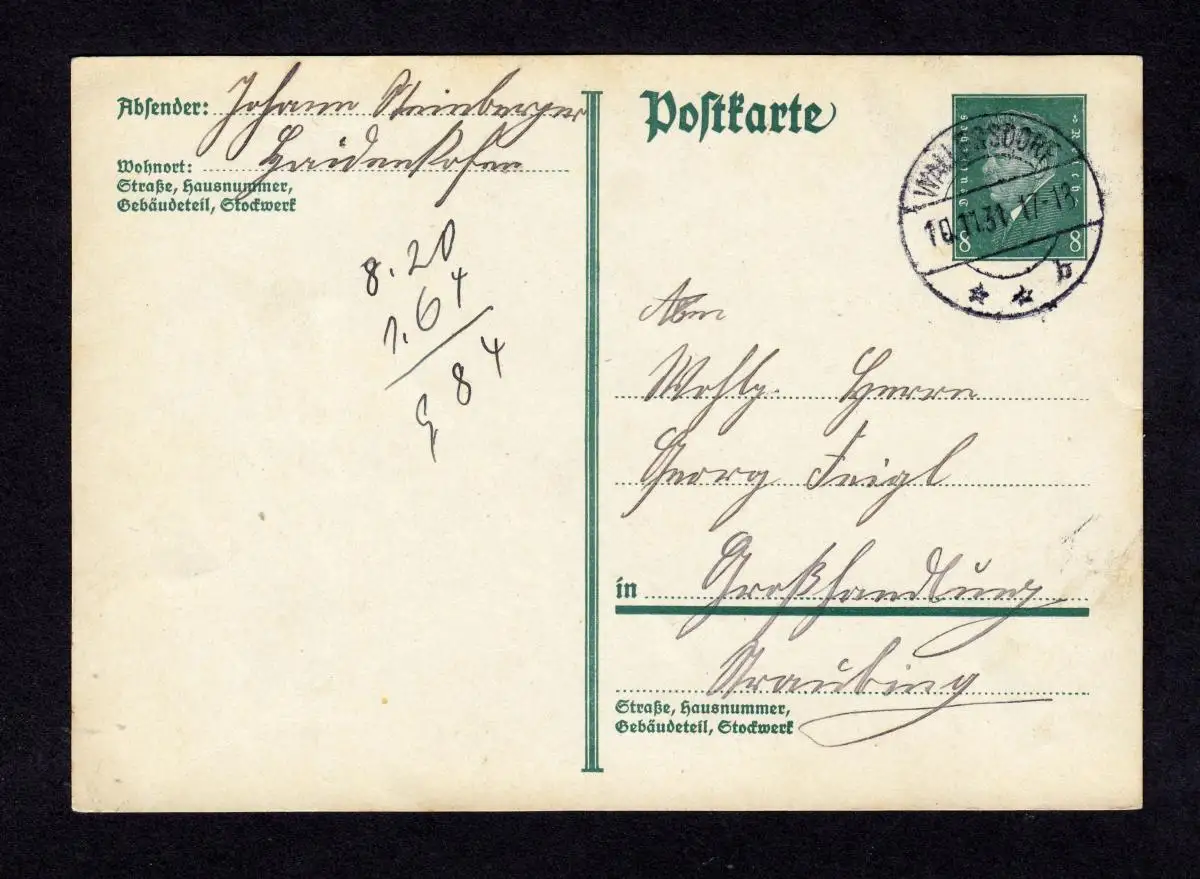 Absender: Johann Steinberger
Haidenkofen
Wohnort:
Straße, Hausnummer,
Gebäudeteil, Stockwerk
8.20
1.64
9 84
Postkarte
Deutsches Reich
8 8
WALLERSDORF
10.11.31. 17-18
b
Wohlg. Herrn
Georg Feigl
in Großhandlung
Straubing
Straße, Hausnummer,
Gebäudeteil, Stockwerk